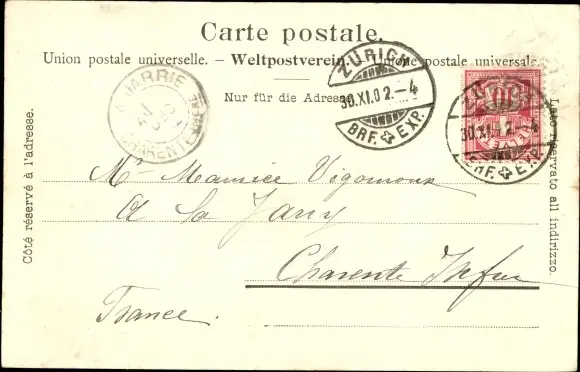 Carte postale.
Union postale universelle. – Weltpostverein. – Unione postale universale.
Nur für die Adresse.
Côté réservé à l'adresse.
Lato riservato all indirizzo.
ZÜRICH
30.XI.02.–4
BRF. EXP.
30.XI.02.–4
BRF. EXP.
JARRIE
CHARENTE
Mr Maurice Vigoroux
A La Jarry
Charente Infre
France.